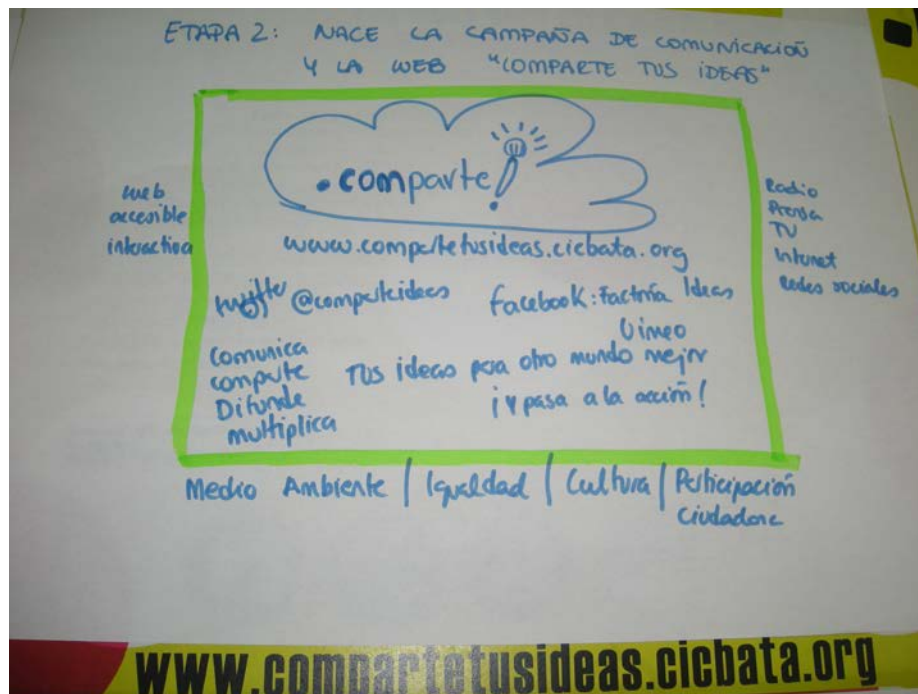 ETAPA 2: NACE LA CAMPAÑA DE COMUNICACIÓN
Y LA WEB "COMPARTE TUS IDEAS"
.comparte!
web
accesible
interactiva
Radio
Prensa
TV
Internet
Redes sociales
www.compartetusideas.cicbata.org
twitter @comparteideas
facebook: Factoría Ideas
Vimeo
comunica
comparte
Difunde
multiplica
Tus ideas para otro mundo mejor
¡y pasa a la acción!
Medio Ambiente | Igualdad | Cultura | Participación
Ciudadana
www.compartetusideas.cicbata.org